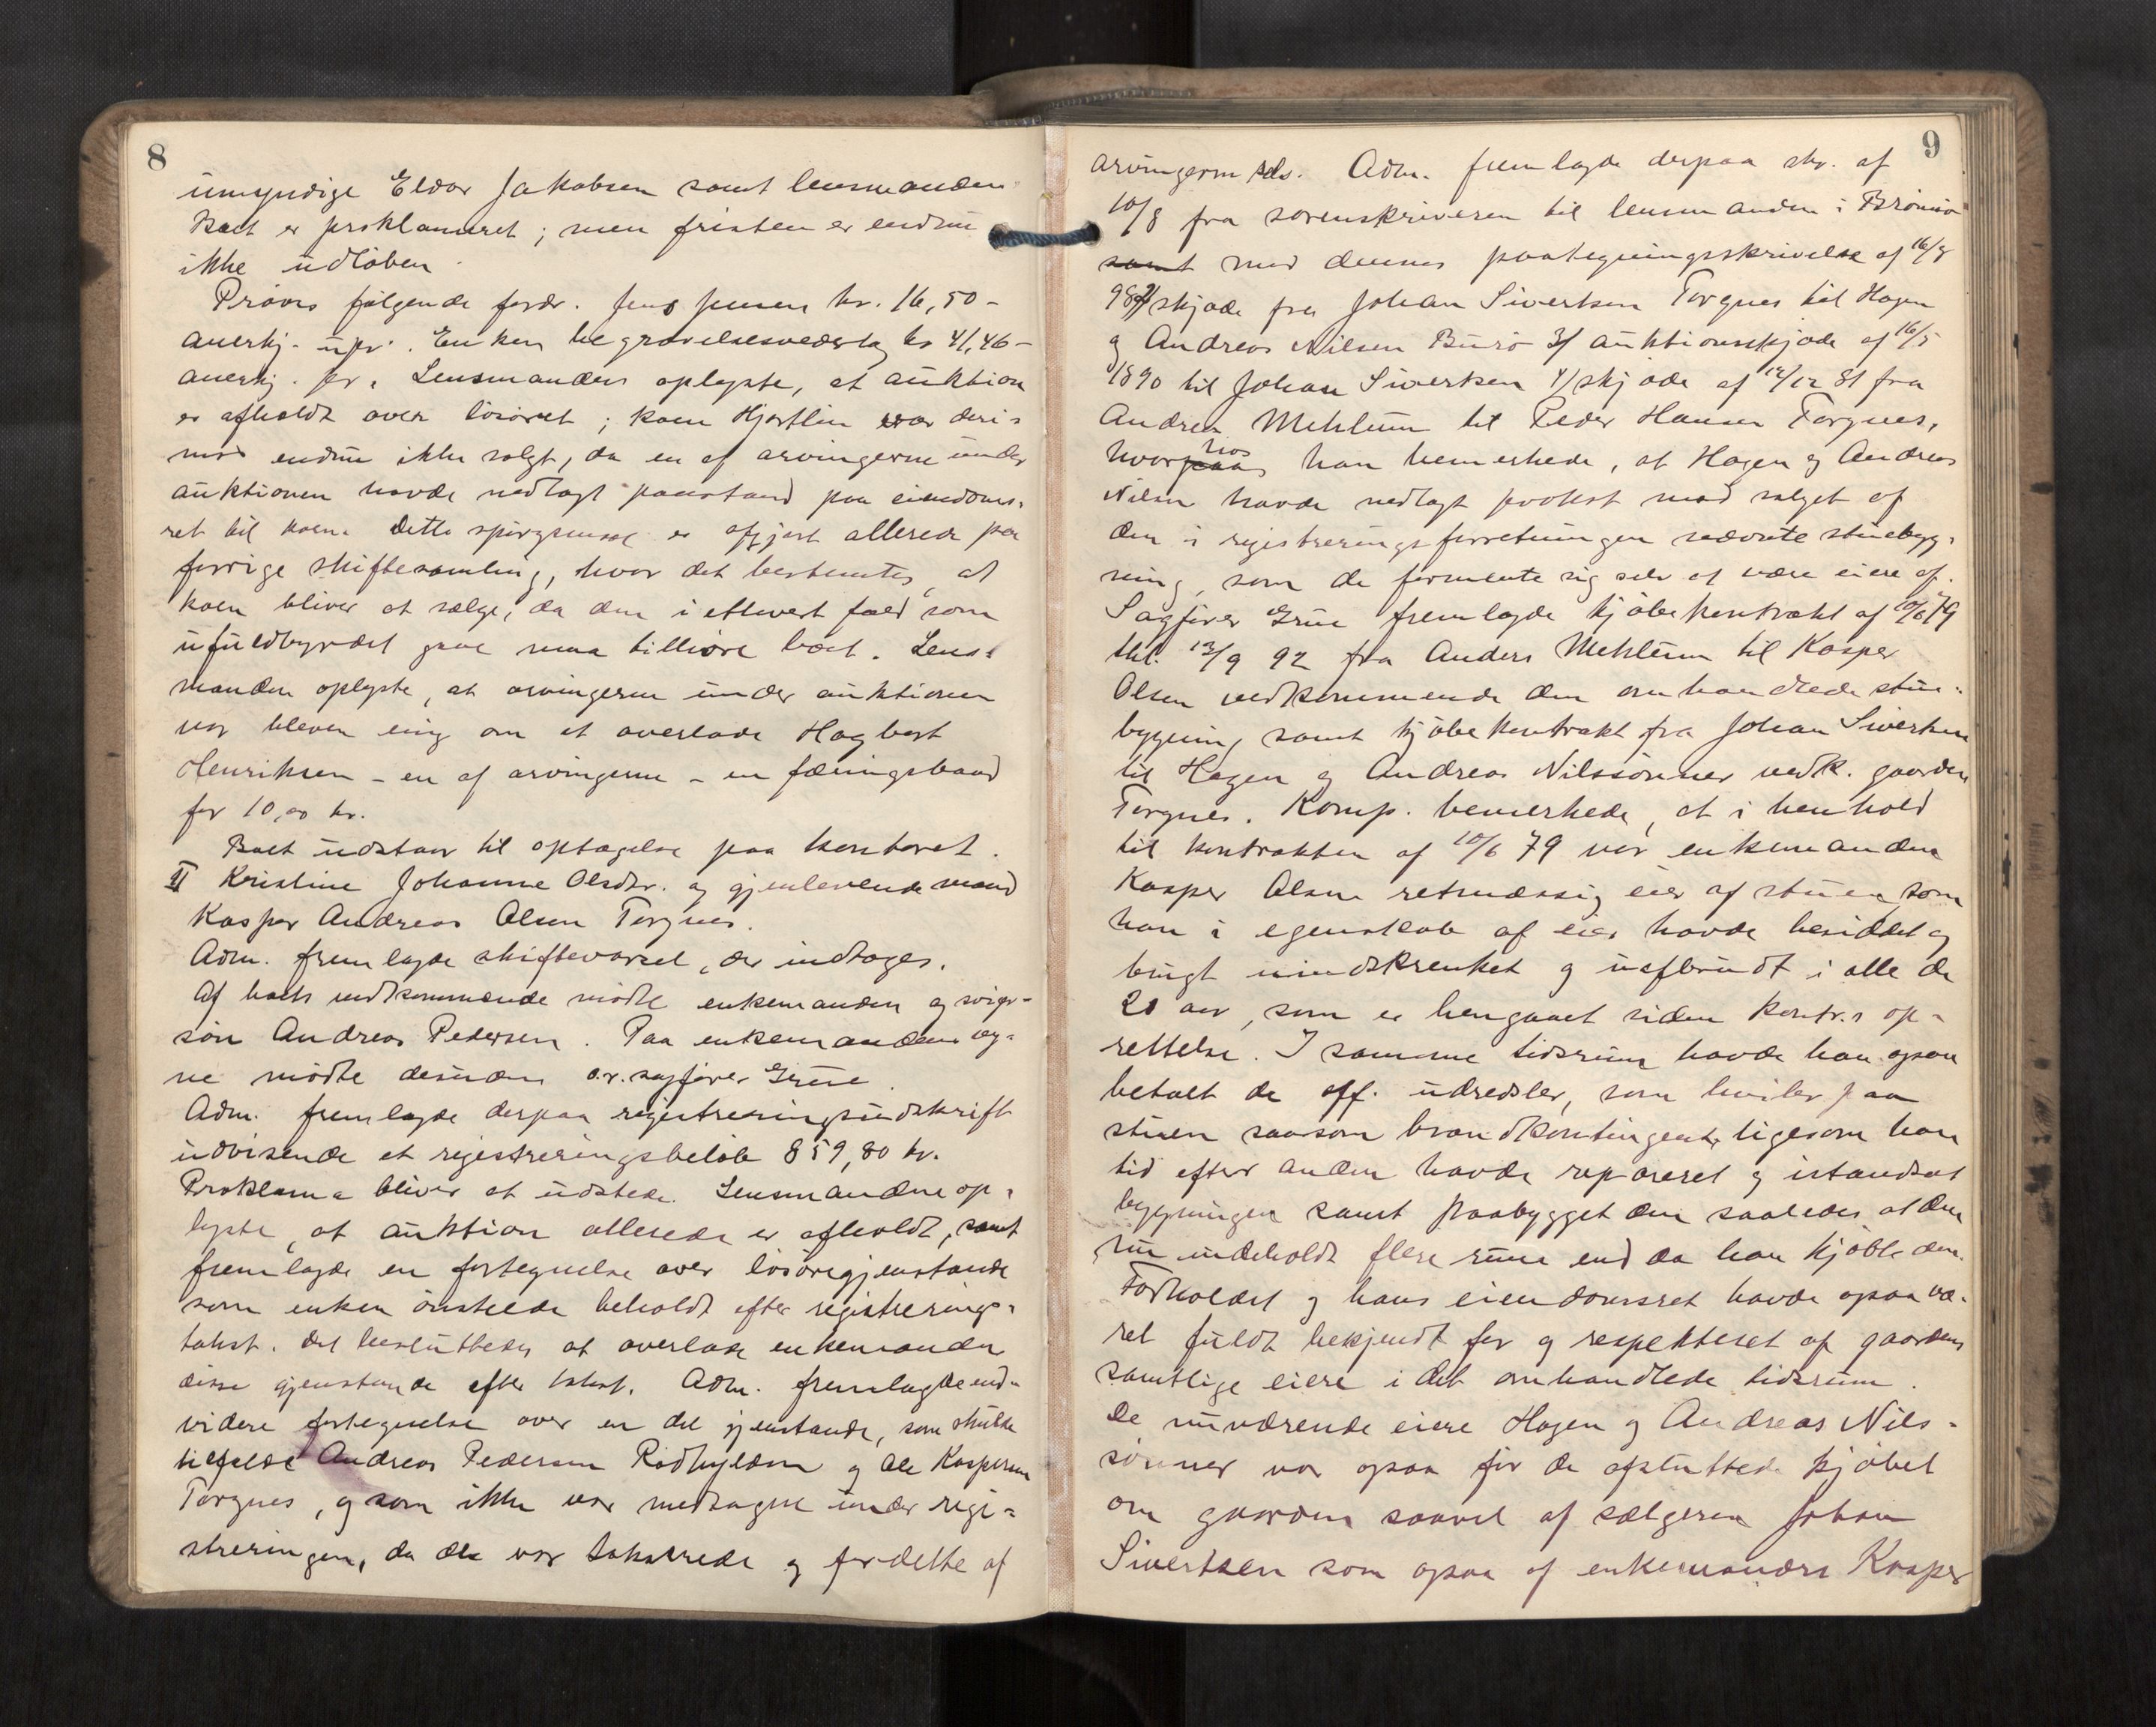 8
umyndige Eldor Jakobsen samt lensmanden
Boet er proklameret; men fristen er endnu
ikke udløben.
Prøves følgende fordr. Jens Jensen kr. 16,50 -
anerkj. upr. Enken begravelsesvederlag kr 41,46 -
anerkj. pr. Lensmanden oplyste, at auktion
er afholdt over løsøret; koen Hjortlin var deri-
mod endnu ikke solgt, da en af arvingerne under
auktionen havde nedlagt paastand paa eiendoms-
ret til koen. Dette spørgsmaal er afgjort allerede paa
forrige skiftesamling, hvor det bestemtes, at
koen bliver at sælge, da den i ethvert fald som
ufuldbyrdet gave maa tilhøre boet. Lens-
manden oplyste, at arvingerne under auktionen
var bleven enig om at overlade Hagbart
Henriksen - en af arvingerne - en færingsbaad
for 10,00 kr.
Boet udstaar til optagelse paa kontoret.
II Kristine Johanne Olsdtr. og gjenlevende mand
Kasper Andreas Olsen Torgnes.
Adm. fremlagde skiftevarsel, der indtages.
Af boets vedkommende mødte enkemanden og sviger-
søn Andreas Pedersen. Paa enkemandens veg-
ne mødte desuden o.r.sagfører Grüe.
Adm. fremlagde derpaa registreringsudskrift
udvisende et registreringsbeløb 859,80 kr.
Proklama bliver at udstede. Lensmanden op-
lyste, at auktion allerede er afholdt, samt
fremlagde en fortegnelse over løsøregjenstande
som enken ønskede beholdt efter registrerings-
takst. Det besluttedes at overlade enkemanden
disse gjenstande efter takst. Adm. fremlagde end-
videre fortegnelse over en del gjenstande, som skulde
tilfalde Andreas Pedersen Rødhylden og Ole Kaspersen
Torgnes, og som ikke var medtagne under regi-
streringen, da de var takserede og førdelte af
9
arvingerne selv. Adm. fremlagde derpaa skr. af
10/8 fra sorenskriveren til lensmanden i Brønnø
samt med dennes paategningsskrivelse af 16/8
98 2/ skjøde fra Johan Sivertsen Torgnes til Hagen
og Andreas Nilsen Burø 3/ auktionsskjøde af 16/5
1890 til Johan Sivertsen 4/ skjøde af 12/12 81 fra
Andrea Mehlum til Peder Hansen Torgnes,
hvorpaa hos han bemerkede, at Hagen og Andreas
Nilsen havde nedlagt protest mod salget af
den i registreringsforretningen nævnte stuebyg-
ning, som de formente sig selv at være eiere af.
Sagfører Grüe fremlagde kjøbekontrakt af 10/6 79
thl. 13/9 92 fra Anders Mehlum til Kasper
Olsen vedkommende den omhandlede stue-
bygning samt kjøbekontrakt fra Johan Sivertsen
til Hagen og Andreas Nilssønner vedk. gaarden
Torgnes. Komp. bemerkede, at i henhold
til kontrakten af 10/6 79 var enkemanden
Kasper Olsen retmæssig eier af stuen, som
han i egenskab af eier havde besiddet og
brugt uindskrenket og uafbrudt i alle de
20 aar, som er hengaaet siden kontr.s op-
rettelse. I samme tidsrum havde han ogsaa
betalt de off. udredsler, som hviler paa
stuen saasom brandkontingent, ligesom han
tid efter anden havde repareret og istandsat
bygningen samt paabygget den saaledes, at den
nu indeholdt flere rum end da han kjøbte den.
Forholdet og hans eiendomsret havde ogsaa væ-
ret fuldt bekjendt for og respekteret af gaardens
samtlige eiere i det omhandlede tidsrum.
De nuværende eiere Hagen og Andreas Nils-
sønner var ogsaa før de afsluttede kjøbet
om gaarden saavel af sælgeren Johan
Sivertsen som ogsaa af enkemanden Kasper